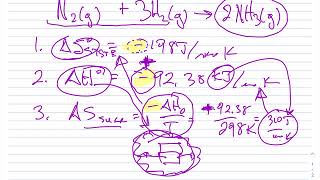 N₂(g) + 3H₂(g) → 2NH₃(g)
1. ΔS°sys = -198 J/mol K
2. ΔH° = -92.38 KJ/mol K
3. ΔSsurr = -ΔH°/T = +92.38/298K = 310J/mol K